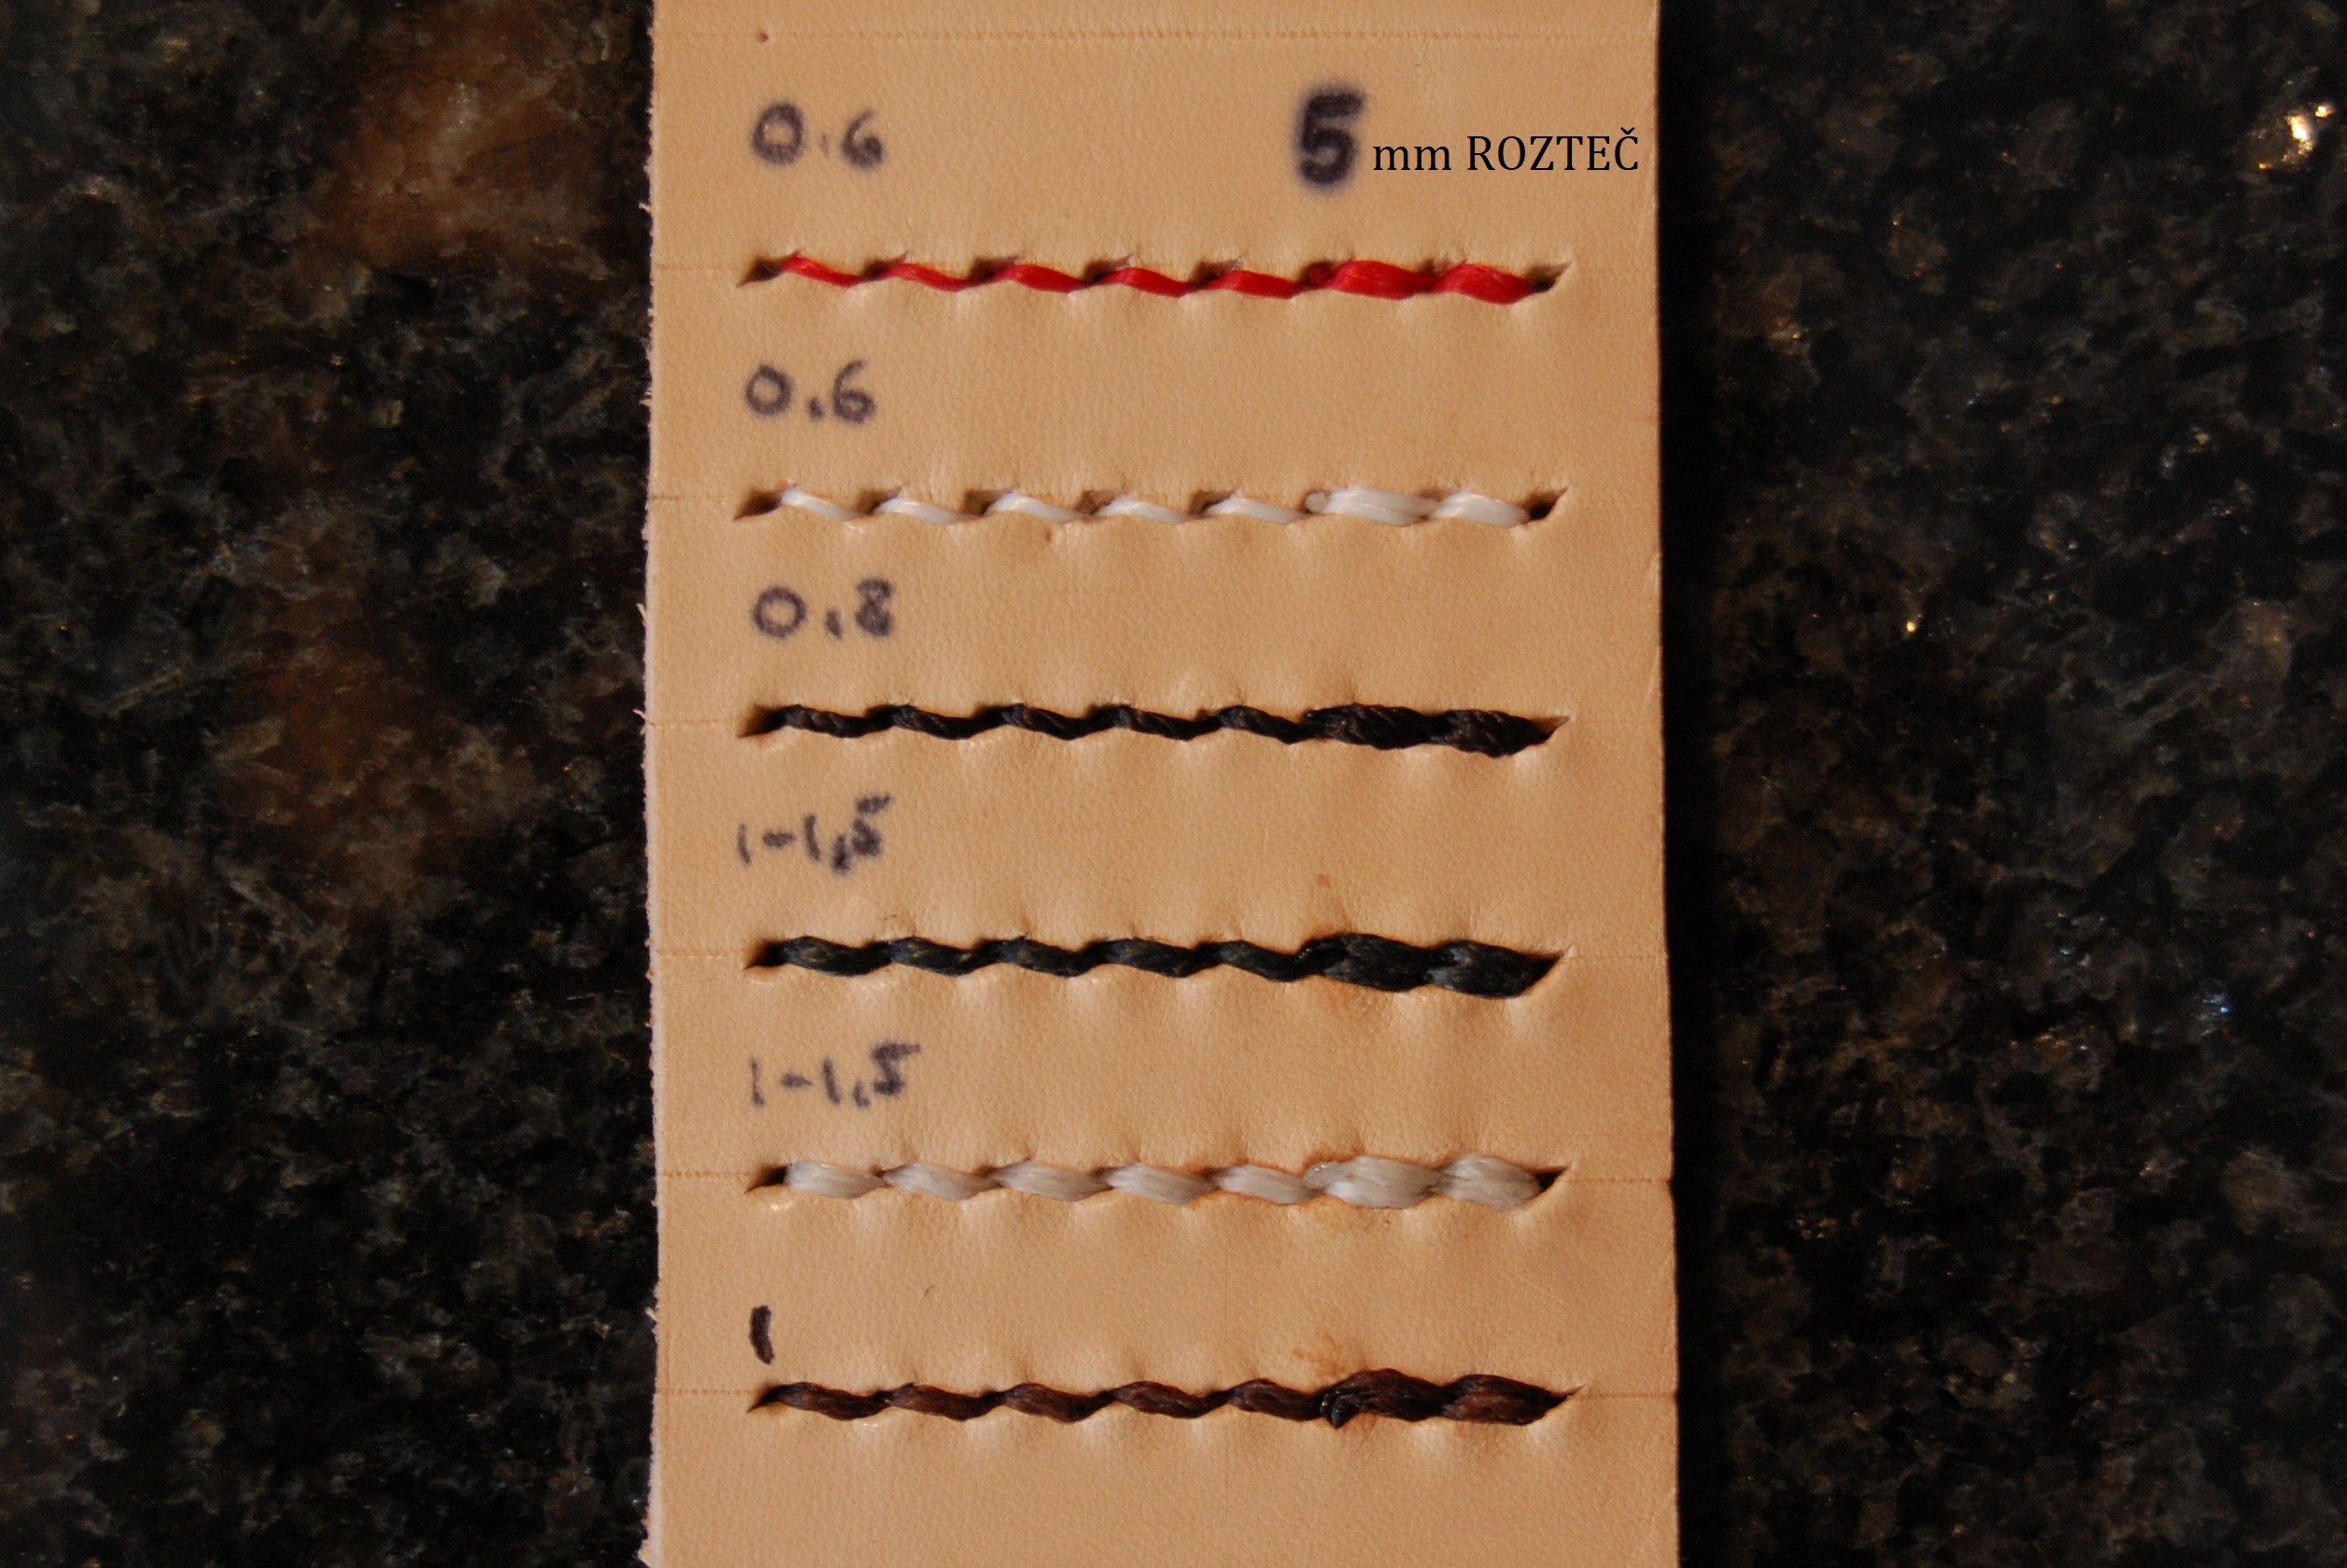 0.6 5 mm ROZTEČ
0.6
0.8
1-1,5
1-1,5
1